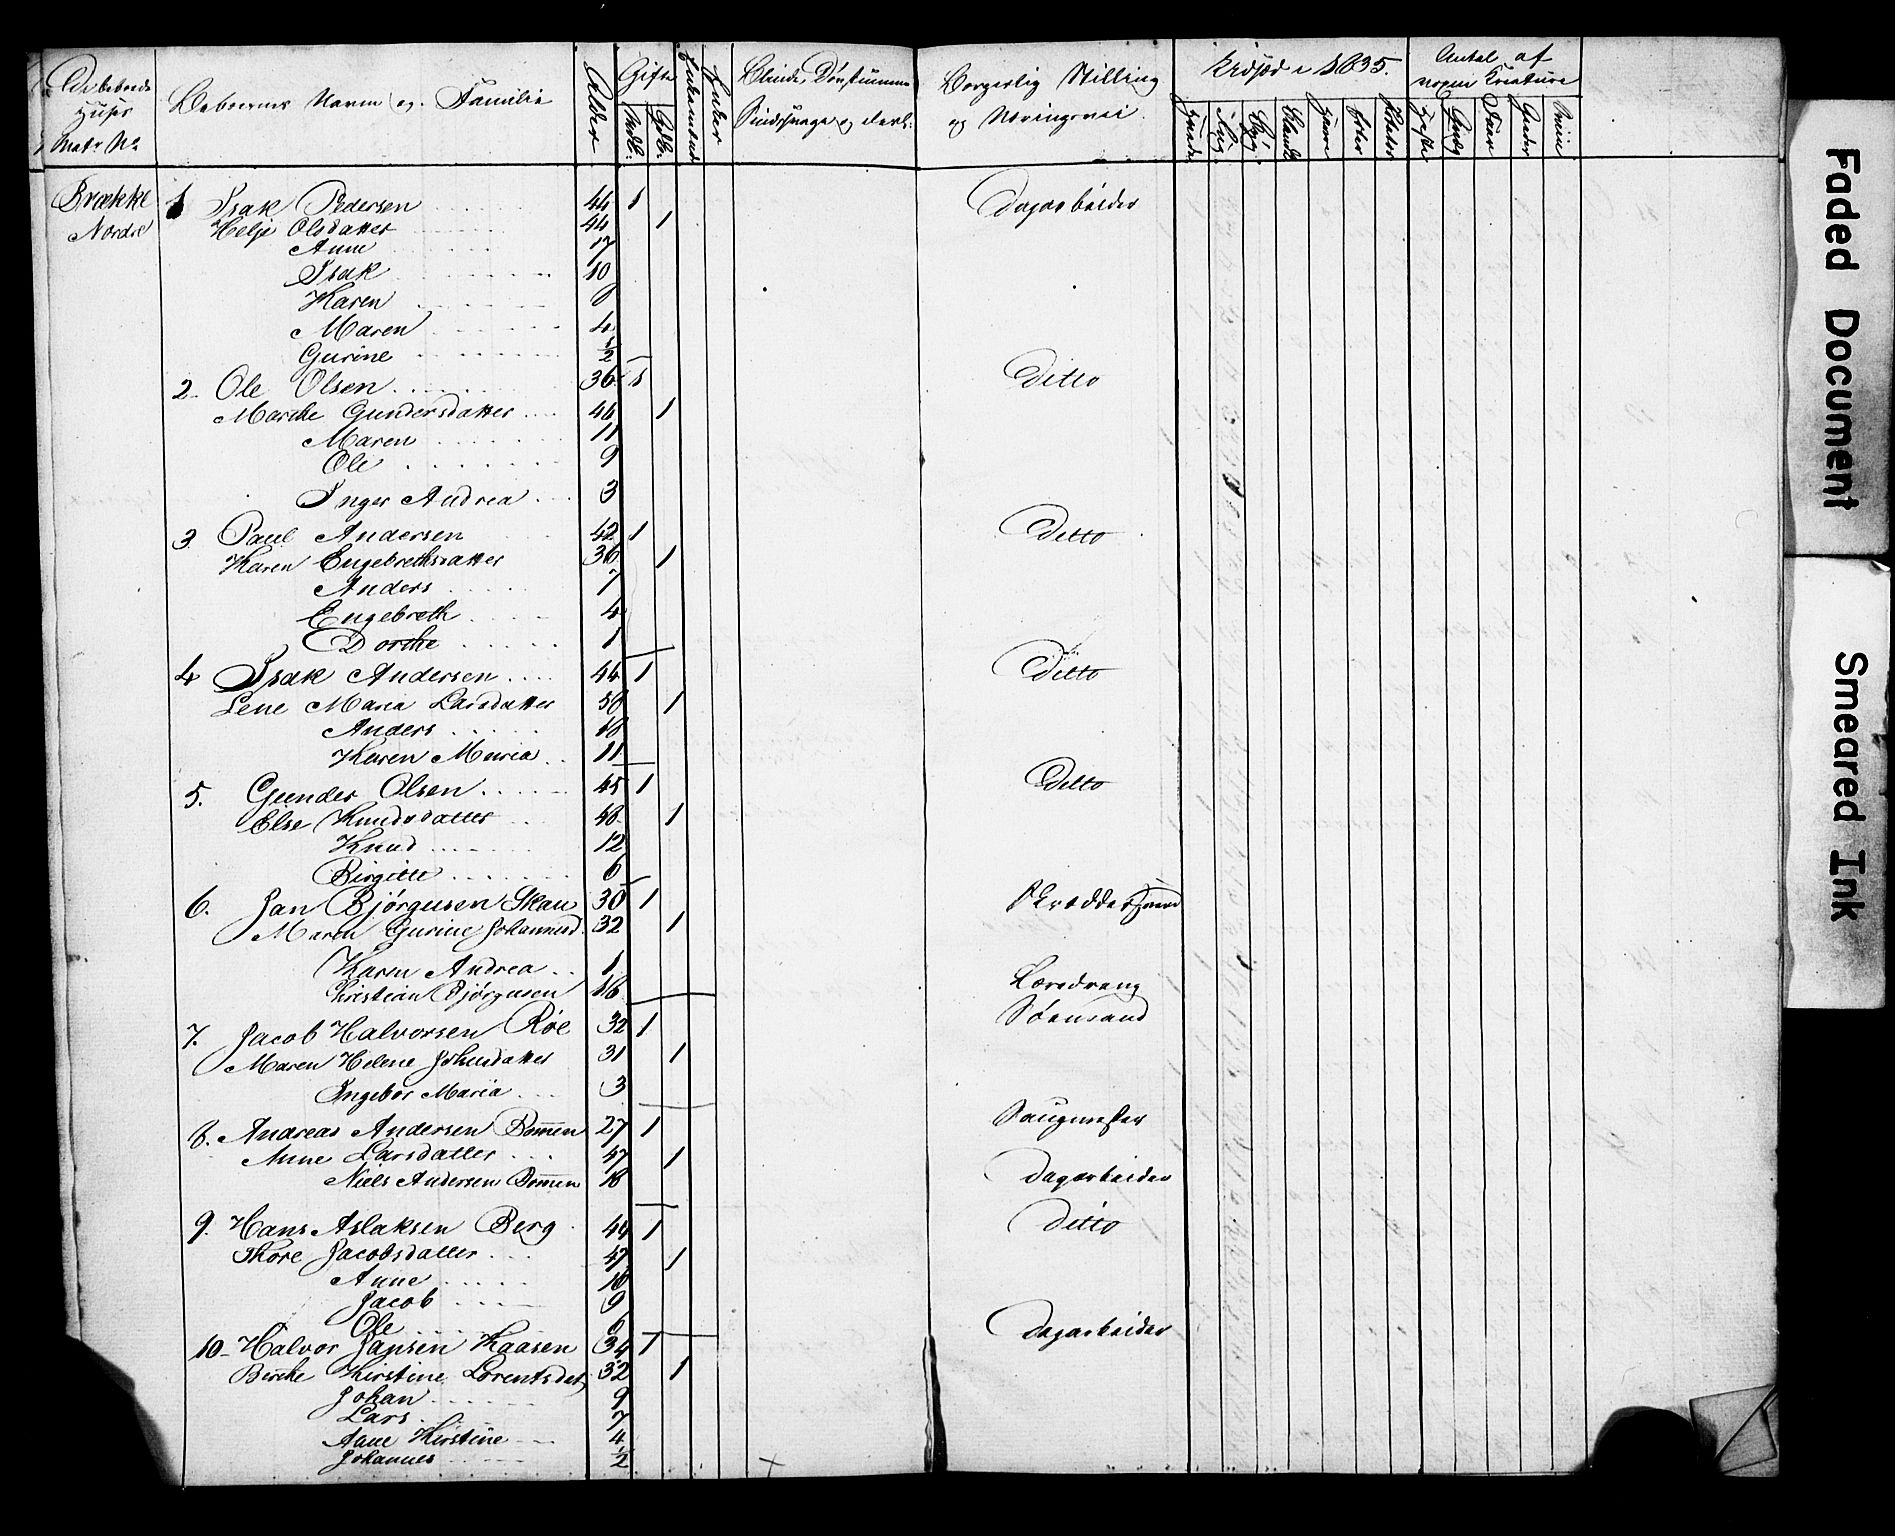 De beboede Huses Matr No
Beboernes Navne og Familie
Alder
Gifte
Mdk:
Qdk:
Enker
Blinde, Døvstumme Sindssvage og deslig:
Borgerlig Stilling og Næringsvei
Udsæd i 1835.
Hvede
Rug
Byg
Bland
Havre
Erter
Poteter
Antal af Kreature
Heste
Faar
Geder
Sviin
Brække Nordre
1 Isak Pedersen 44 1 Dagarbeider
Helje Olsdatter 44 1
Anne 17
Isak 10
Karen 8
Maren 4
Gurine ½
2. Ole Olsen 36 1 Ditto
Marthe Gundersdatter 46 1
Maren 11
Ole 9
Inger Andrea 3
3 Paul Andersen 42 1 Ditto
Karen Engebrethsdatter 36 1
Anders 7
Engebreth 4
Dorthe 1
4 Isak Andersen 44 1 Ditto
Lene Maria Larsdatter 50 1
Anders 18
Karen Maria 11
5. Gunder Olsen 45 1 Ditto
Else Knudsdatter 48 1
Knud 12
Birgitte 6
6. Jan Bjørgusen Skau 30 1 Skrædder
Maren Gurine Johannesd. 32 1
Karen Andrea 1
Kristian Bjørgusen 16 Læredreng
7. Jacob Halvorsen Röe 32 1 Söemand
Maren Helene Johnsdatter 31 1
Ingebor Maria 3
8. Andreas Andersen Bommen 27 1 Saugmester
Anne Larsdatter 47 1
Niels Andersen Bommen 18 Dagarbeider
9. Hans Aslaksen Berg 44 1 Ditto
Thore Jacobsdatter 47 1
Anne 16
Jacob 9
Ole 6
10 Halvor Jansen Haasen 34 1 Dagarbeider
Berthe Kirstine Lorentsdat, 32 1
Johan 9
Lars 7
Aane Kirstine 4
Johannes ½
Faded Document
Smeared Ink